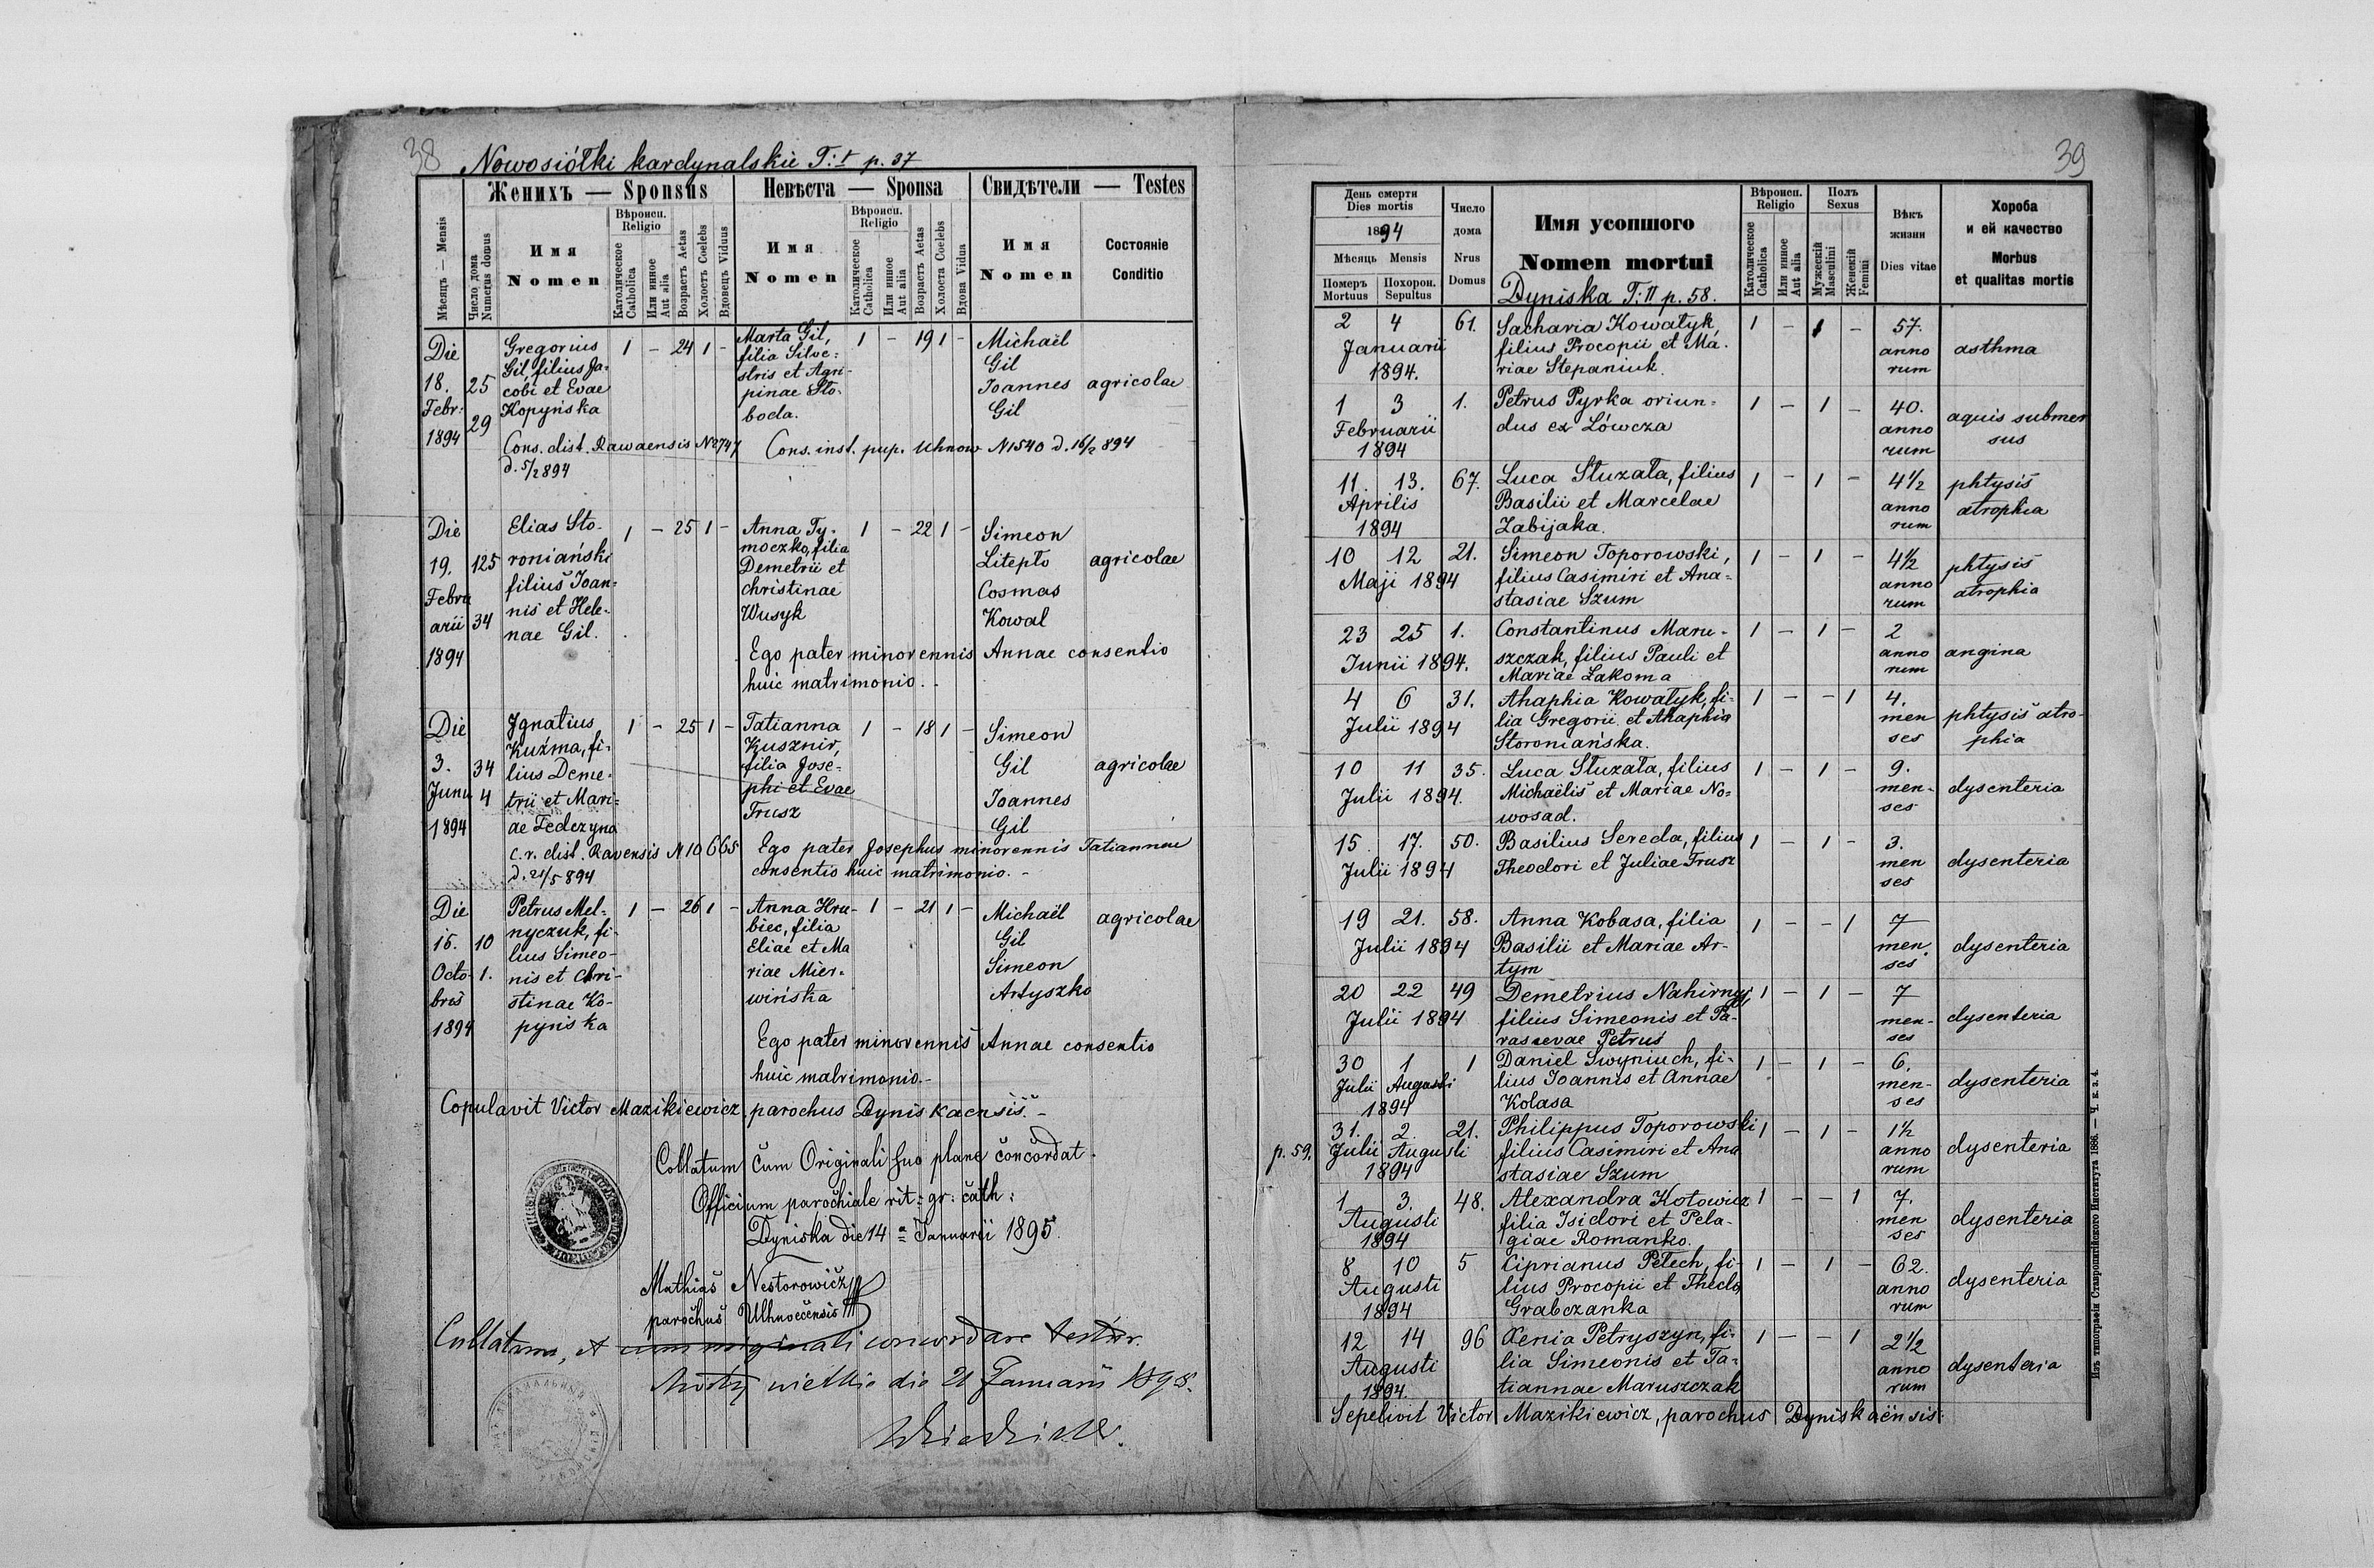 38
Nowosiółki kardynalskie T: I p. 37
Женихъ — Sponsus
Невѣста — Sponsa
Свидѣтели — Testes
Мѣсяць — Mensis
Число дома
Numerus domus
Имя
Nomen
Вѣроисп.
Religio
Католическое
Catholica
Или инное
Aut alia
Возрастъ Aetas
Холостъ Coelebs
Вдовецъ Viduus
Имя
Nomen
Вѣроисп.
Religio
Католическое
Catholica
Или инное
Aut alia
Возрастъ Aetas
Холоста Coelebs
Вдова Vidua
Имя
Nomen
Состояніе
Conditio
Die
18.
Febr:
1894
25
29
Gregorius
Gil, filius Ja-
cobi et Evae
Kopyńska
1 — 24 1 —
Marta Gil,
filia Silve-
stris et Agri-
pinae Sło-
boda.
1 — 19 1 —
Michaël
Gil
Joannes
Gil
agricolae
Cons. dist. Rawaensis N 2747
d. 5/2 894
Cons. inst. pup. Uhnow N 1540 d. 16/2 894
Die
19.
Febru
arii
1894
125
34
Elias Sto-
roniański
filius Joan-
nis et Hele-
nae Gil.
1 — 25 1 —
Anna Ty-
moczko, filia
Demetrii et
christinae
Wusyk
1 — 22 1 —
Simeon
Litepło
Cosmas
Kowal
agricolae
Ego pater minorennis Annae consentio
huic matrimonio. -
Die
3.
Junii
1894
34
4
Ignatius
Kuźma, fi-
lius Deme-
trii et Mari-
ae Fedczyna
1 — 25 1 —
Tatianna
Kusznir,
filia Jose-
phi et Evae
Trusz
1 — 18 1 —
Simeon
Gil
Joannes
Gil
agricolae
c. r. dist. Ravensis N 10665
d. 21/5 894
Ego pater Josephus minorennis Tatiannae
consentio huic matrimonio. -
Die
15.
Octo-
bris
1894
10
1.
Petrus Mel-
nyczuk, fi-
lius Simeo-
nis et Chri-
stinae Ko-
pyńska
1 — 26 1 —
Anna Hru-
biec, filia
Eliae et Ma
riae Mier-
wińska
1 — 21 1 —
Michaël
Gil
Simeon
Artyszko
agricolae
Ego pater minorennis Annae consentio
huic matrimonio. -
Copulavit Victor Mazikiewicz, parochus Dyniskaensis. -
Collatum cum Originali suo plane concordat.
Officium parochiale rit: gr: cath:
Dyniska die 14 a Januarii 1895.
Mathias Nestorowicz
parochus Uhnovecensis
Collatum, et cum originali concordare testor.
wielkie die 21 Januarii 1895.
39
День смерти
Dies mortis
1894
Мѣсяць Mensis
Померъ
Mortuus
Похорон.
Sepultus
Число
дома
Nrus
Domus
Имя усопшого
Nomen mortui
Dyniska T: II p. 58.
Вѣроисп.
Religio
Католическое
Catholica
Или инное
Aut alia
Полъ
Sexus
Мужескій
Masculini
Женскій
Femini
Вѣкъ
жизни
Dies vitae
Хороба
и ей качество
Morbus
et qualitas mortis
2 4 61.
Januarii
1894.
Sacharia Kowałyk,
filius Procopii et Ma-
riae Stepaniuk.
1 — 1 —
57.
anno
rum
asthma
1 3 1.
Februarii
1894
Petrus Pyrka oriun-
dus ex Łówcza
1 — 1 —
40.
anno
rum
aquis submer
sus
11. 13. 67.
Aprilis
1894
Luca Słuzała, filius
Basilii et Marcelae
Zabijaka.
1 — 1 —
4 1/2
anno
rum
phtysis
atrophia
10 12 21.
Maji 1894
Simeon Toporowski,
filius Casimiri et Ana-
stasiae Szum
1 — 1 —
4 1/2
anno
rum
phtysis
atrophia
23 25 1.
Junii 1894.
Constantinus Maru-
szczak, filius Pauli et
Mariae Łakoma
1 — 1 —
2
anno
rum
angina
4 6 31.
Julii 1894
Ahaphia Kowałyk, fi-
lia Gregorii et Ahaphia
Storoniańska.
1 — — 1
4.
men
ses
phtysis atro-
phia
10 11 35.
Julii 1894.
Luca Słuzała, filius
Michaëlis et Mariae No-
wosad.
1 — 1 —
9.
men-
ses
dysenteria
15 17. 50.
Julii 1894
Basilius Sereda, filius
Theodori et Juliae Trusz
1 — 1 —
3.
men
ses
dysenteria
19 21. 58.
Julii 1894
Anna Kobasa, filia
Basilii et Mariae Ar-
tym
1 — — 1
7
men
ses
dysenteria
20 22 49
Julii 1894
Demetrius Nahirnyj,
filius Simeonis et Pa-
rascevae Petrus
1 — 1 —
7
men-
ses
dysenteria
30 1 1
Julii Augusti
1894
Daniel Swyniuch, fi-
lius Joannis et Annae
Kolasa
1 — 1 —
6.
men-
ses
dysenteria
p. 59.
31. 2. 21.
Julii Augusti
1894
Philippus Toporowski
filius Casimiri et Ana
stasiae Szum
1 — 1 —
1 1/2
anno
rum
dysenteria
1 3. 48.
Augusti
1894
Alexandra Kotowicz
filia Isidori et Pela-
giae Romanko.
1 — — 1
7.
men
ses
dysenteria
8 10 5
Augusti
1894
Ciprianus Pełech, fi-
lius Procopii et Thecla
Grabczanka
1 — 1 —
62.
anno
rum
dysenteria
12 14 96
Augusti
1894.
Xenia Petryszyn, fi-
lia Simeonis et Ta-
tiannae Maruszczak
1 — — 1
2 1/2
anno
rum
dysenteria
Sepelivit Victor Mazikiewicz, parochus Dyniskaënsis.
Изъ типографіи Ставропигійского Института 1886. — Ч. к. а. 4.